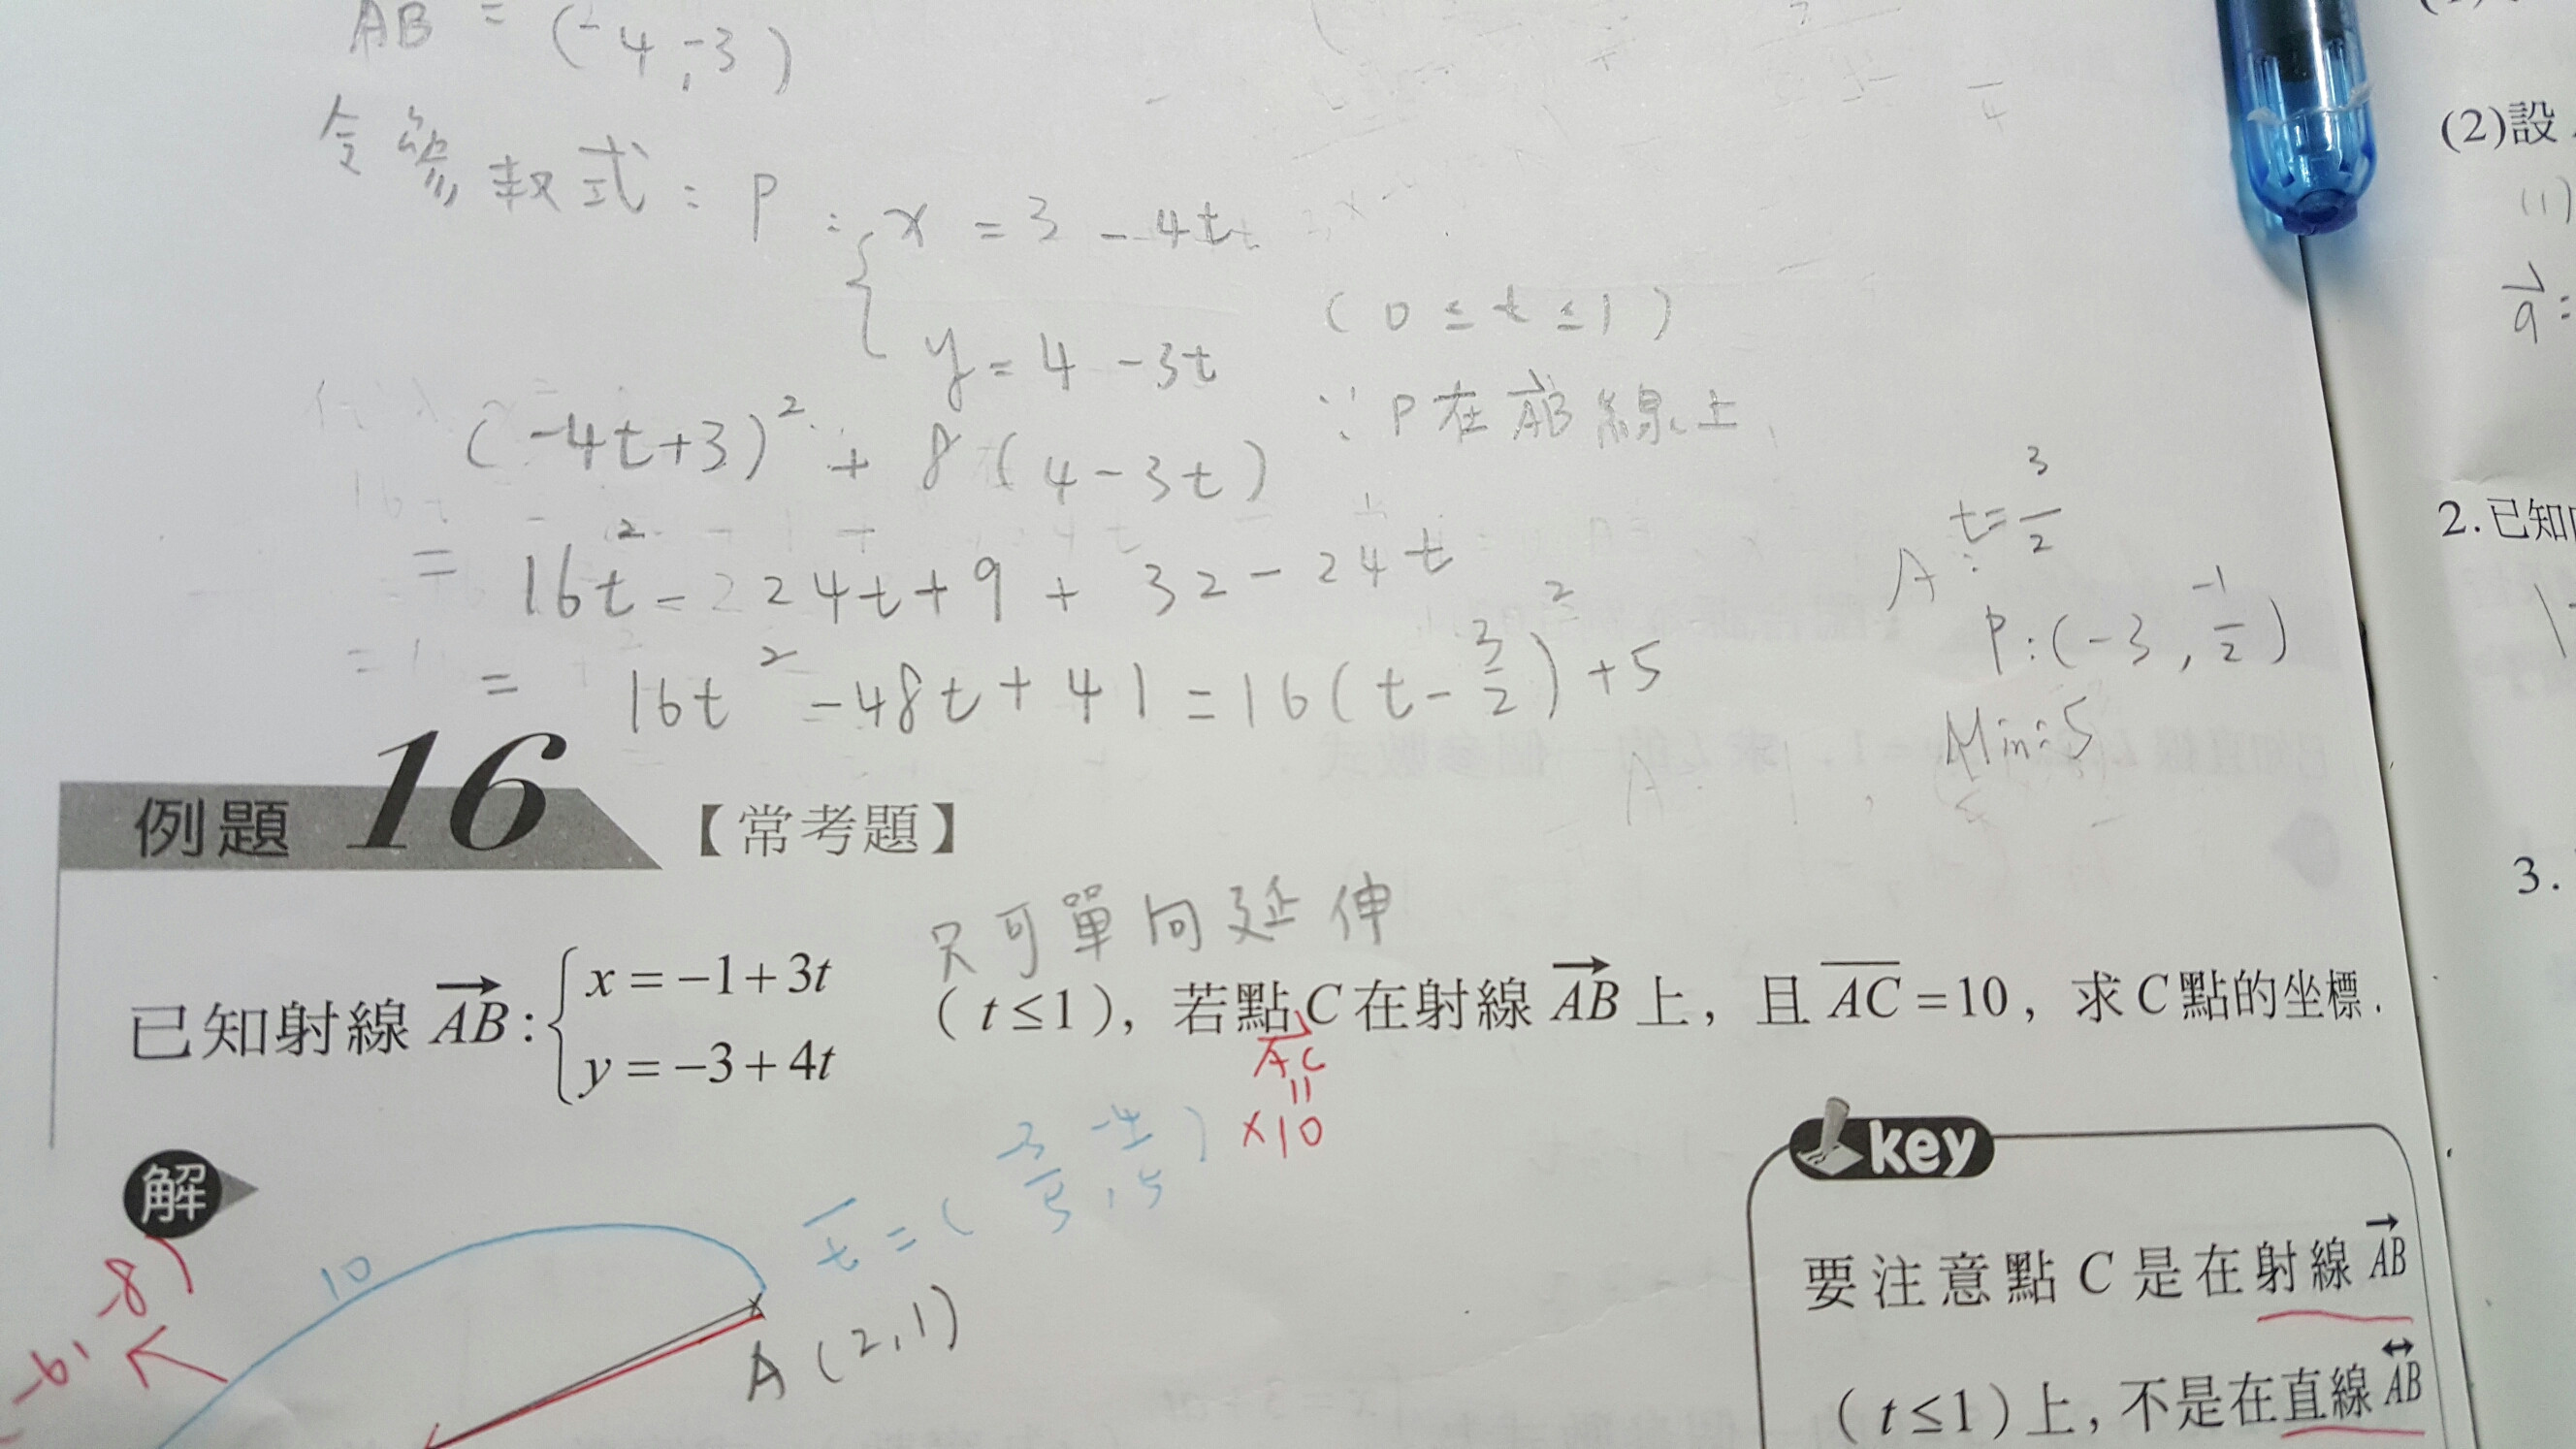 AB = (-4,-3)
令參數式：P：{ x = 3 - 4t
y = 4 - 3t
(0 ≤ t ≤ 1)
∵ P在AB線上
(-4t+3)² + 8(4-3t)
= 16t² - 24t + 9 + 32 - 24t
= 16t² - 48t + 41 = 16(t - 3/2)² + 5
A：t = 3/2
P：(-3, -1/2)
Min：5
例題 16 【常考題】
只可單向延伸
已知射線 AB：{ x = -1 + 3t
y = -3 + 4t
( t ≤ 1 )，若點 C 在射線 AB 上，且 AC = 10，求 C 點的坐標．
AC
=
×10
t = (-3/5, -4/5)
解
key
10
-6, -8)
A (2,1)
要注意點 C 是在射線 AB
( t ≤ 1 ) 上，不是在直線 AB
(2)設
(1)
a =
2.已知
3.